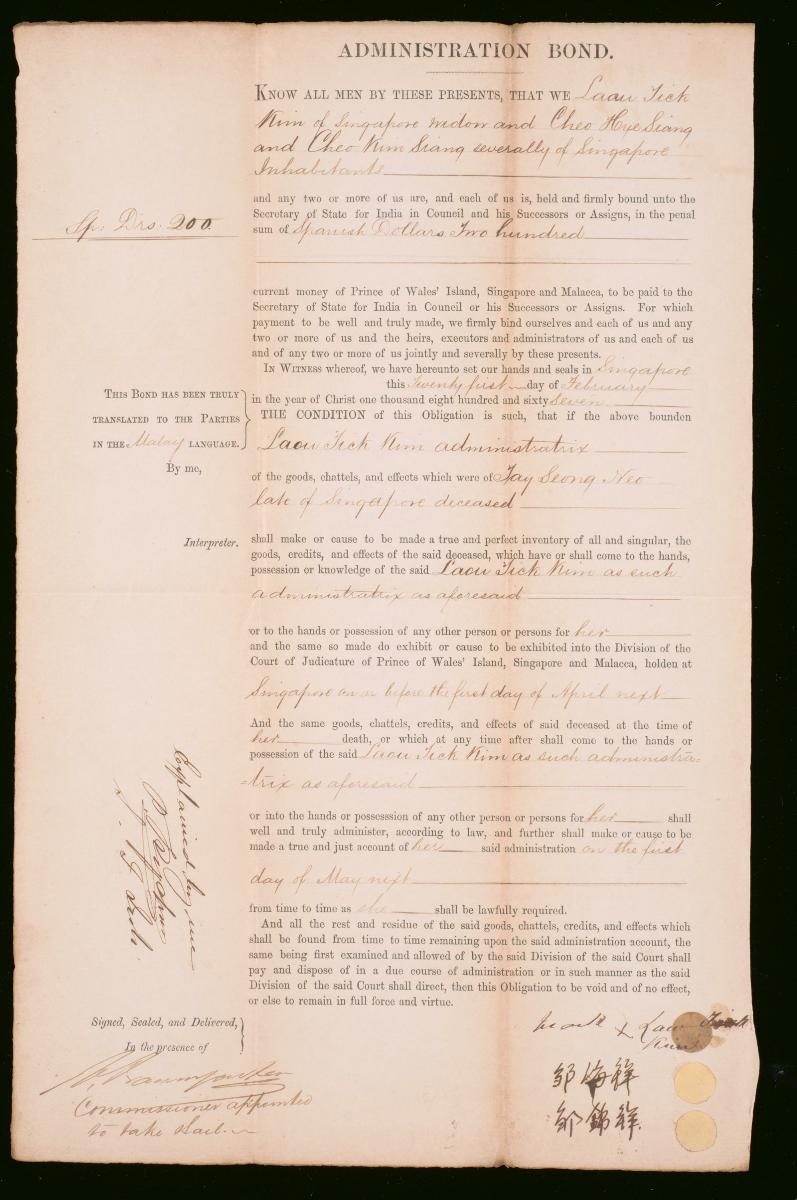 ADMINISTRATION BOND.
KNOW ALL MEN BY THESE PRESENTS, THAT WE Laou Tick
Kim of Singapore widow and Cheo Hye Siang
and Cheo Kim Siang severally of Singapore
Inhabitants
and any two or more of us are, and each of us is, held and firmly bound unto the
Secretary of State for India in Council and his Successors or Assigns, in the penal
Sp: Drs. 200.
sum of Spanish Dollars Two hundred
current money of Prince of Wales' Island, Singapore and Malacca, to be paid to the
Secretary of State for India in Council or his Successors or Assigns. For which
payment to be well and truly made, we firmly bind ourselves and each of us and any
two or more of us and the heirs, executors and administrators of us and each of us
and of any two or more of us jointly and severally by these presents.
IN WITNESS whereof, we have hereunto set our hands and seals in Singapore
this Twenty first day of February
in the year of Christ one thousand eight hundred and sixty Seven
THIS BOND HAS BEEN TRULY
TRANSLATED TO THE PARTIES
IN THE Malay LANGUAGE.
By me,
Interpreter.
THE CONDITION of this Obligation is such, that if the above bounden
Laou Tick Kim administratrix
of the goods, chattels, and effects which were of Tay Seong Neo
late of Singapore deceased
shall make or cause to be made a true and perfect inventory of all and singular, the
goods, credits, and effects of the said deceased, which have or shall come to the hands,
possession or knowledge of the said Laou Tick Kim as such
administratrix as aforesaid
or to the hands or possession of any other person or persons for her
and the same so made do exhibit or cause to be exhibited into the Division of the
Court of Judicature of Prince of Wales' Island, Singapore and Malacca, holden at
Singapore on or before the first day of April next
And the same goods, chattels, credits, and effects of said deceased at the time of
her death, or which at any time after shall come to the hands or
possession of the said Laou Tick Kim as such administra=
=trix as aforesaid
or into the hands or possesssion of any other person or persons for her shall
well and truly administer, according to law, and further shall make or cause to be
made a true and just account of her said administration on the first
day of May next
from time to time as she shall be lawfully required.
And all the rest and residue of the said goods, chattels, credits, and effects which
shall be found from time to time remaining upon the said administration account, the
same being first examined and allowed of by the said Division of the said Court shall
pay and dispose of in a due course of administration or in such manner as the said
Division of the said Court shall direct, then this Obligation to be void and of no effect,
or else to remain in full force and virtue.
Explained by me
Signed, Sealed, and Delivered,
In the presence of
Commissioner appointed
to take Bail.
mark x Laou Tick
Kim
邹海祥
邹錦祥